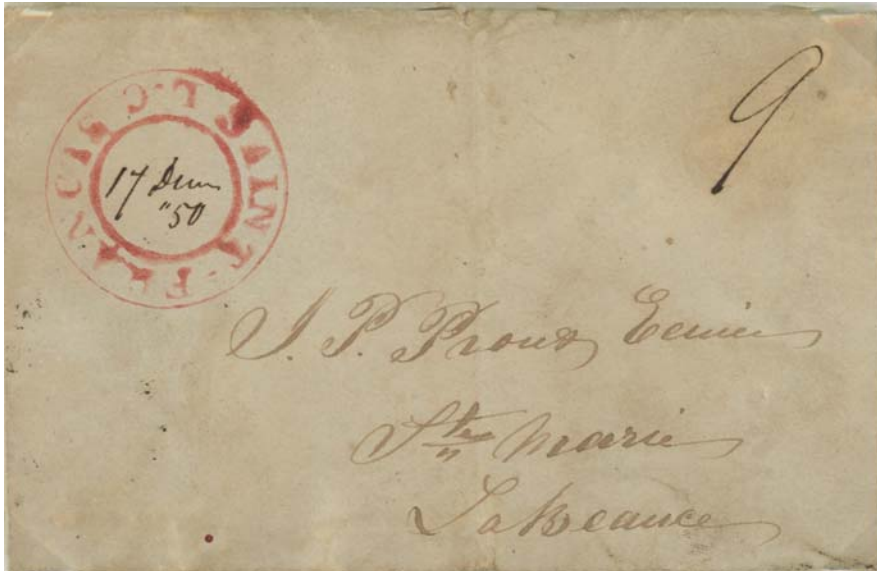 SAINT-FRANCIS L·C
17
"50
9
J. P. Proux Ecuier
Ste Marie
La Beauce